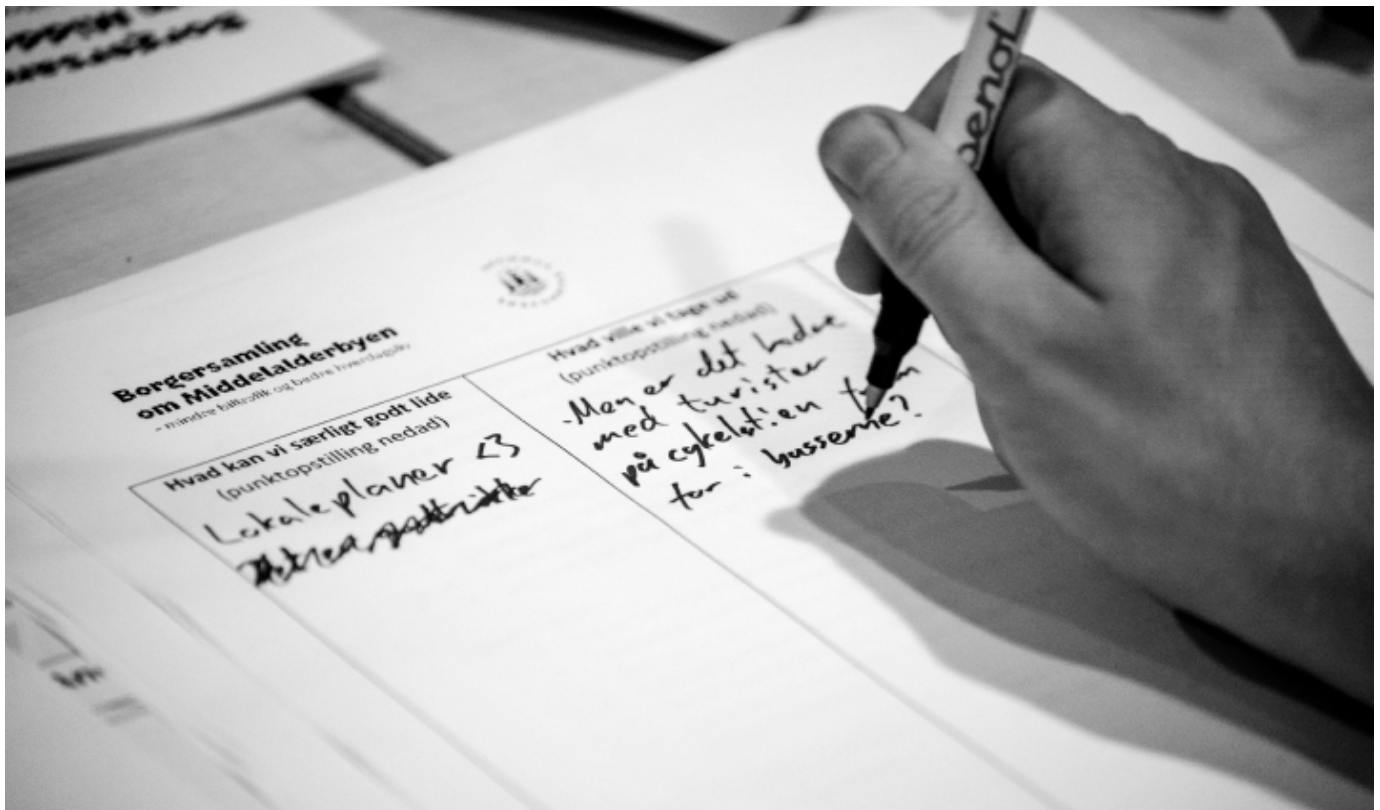 Borgersamling
om Middelalderbyen
- mindre biltrafik og bedre hverdagsliv
Hvad kan vi særligt godt lide
(punktopstilling nedad)
Lokaleplaner <3
Hvad ville vi tage ud
(punktopstilling nedad)
- Men er det bedre
med turister
på cykelstien frem
for i busserne?
penol